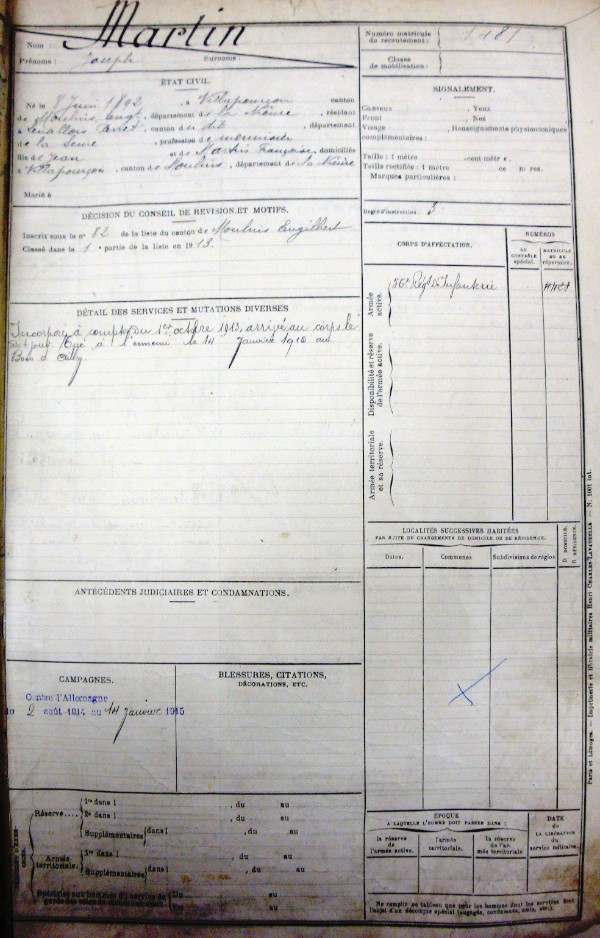 Martin
Nom :
Prénoms : Joseph Surnoms :
Numéro matricule
du recrutement :
Classe
de mobilisation :
ÉTAT CIVIL.
Né le 8 Juin 1892, à Villapourçon canton
de Moulins Engt, département de la Nièvre, résidant
à Levallois Perret, canton de dit, département
de la Seine, profession de menuisier
fils de Jean et de Martin Françoise, domiciliés
à Villapourçon, canton de Moulins, département de la Nièvre
Marié à
SIGNALEMENT.
Cheveux Yeux
Front Nez
Visage Renseignements physionomiques
complémentaires :
Taille : 1 mètre cent mètres.
Taille rectifiée : 1 mètre
Marques particulières :
Degré d'instruction : 3
DÉCISION DU CONSEIL DE REVISION ET MOTIFS.
Inscrit sous le n° 82 de la liste du canton de Moulins Engilbert
Classé dans la 1e partie de la liste en 1913.
DÉTAIL DES SERVICES ET MUTATIONS DIVERSES
Incorporé à compter du 1er octobre 1913, arrivé au corps le
dit jour. Tué à l'ennemi le 14 Janvier 1915 au
Bois d'Ailly.
CORPS D'AFFECTATION.
NUMÉROS
AU CONTRÔLE spécial.
MATRICULE OU AU répertoire.
Armée active.
56e Régt d'Infanterie
Disponibilité et réserve de l'armée active.
Armée territoriale et sa réserve.
LOCALITÉS SUCCESSIVES HABITÉES
PAR SUITE DE CHANGEMENTS DE DOMICILE OU DE RÉSIDENCE.
Dates.
Communes
Subdivisions de région
D. DOMICILE.
R. RÉSIDENCE.
ANTÉCÉDENTS JUDICIAIRES ET CONDAMNATIONS.
CAMPAGNES.
Contre l'Allemagne
2 août 1914 au 14 janvier 1915
BLESSURES, CITATIONS,
DÉCORATIONS, ETC.
Réserve....
1re dans l , du au
2e dans l , du au
Supplémentaires dans l , du au
Armée territoriale.
1re dans l , du au
Supplémentaires dans l , du au
Spéciales aux hommes du service de
garde des voies de communication
Du au
Du au
ÉPOQUE
A LAQUELLE L'HOMME DOIT PASSER DANS :
la réserve de l'armée active.
l'armée territoriale.
la réserve de l'armée territoriale
DATE
DE LA LIBÉRATION du service militaire.
Ne remplir ce tableau que pour les hommes dont les services font
l'objet d'un décompte spécial (engagés, condamnés, omis, etc.).
Paris et Limoges. — Imprimerie et librairie militaires Henri CHARLES-LAVAUZELLE